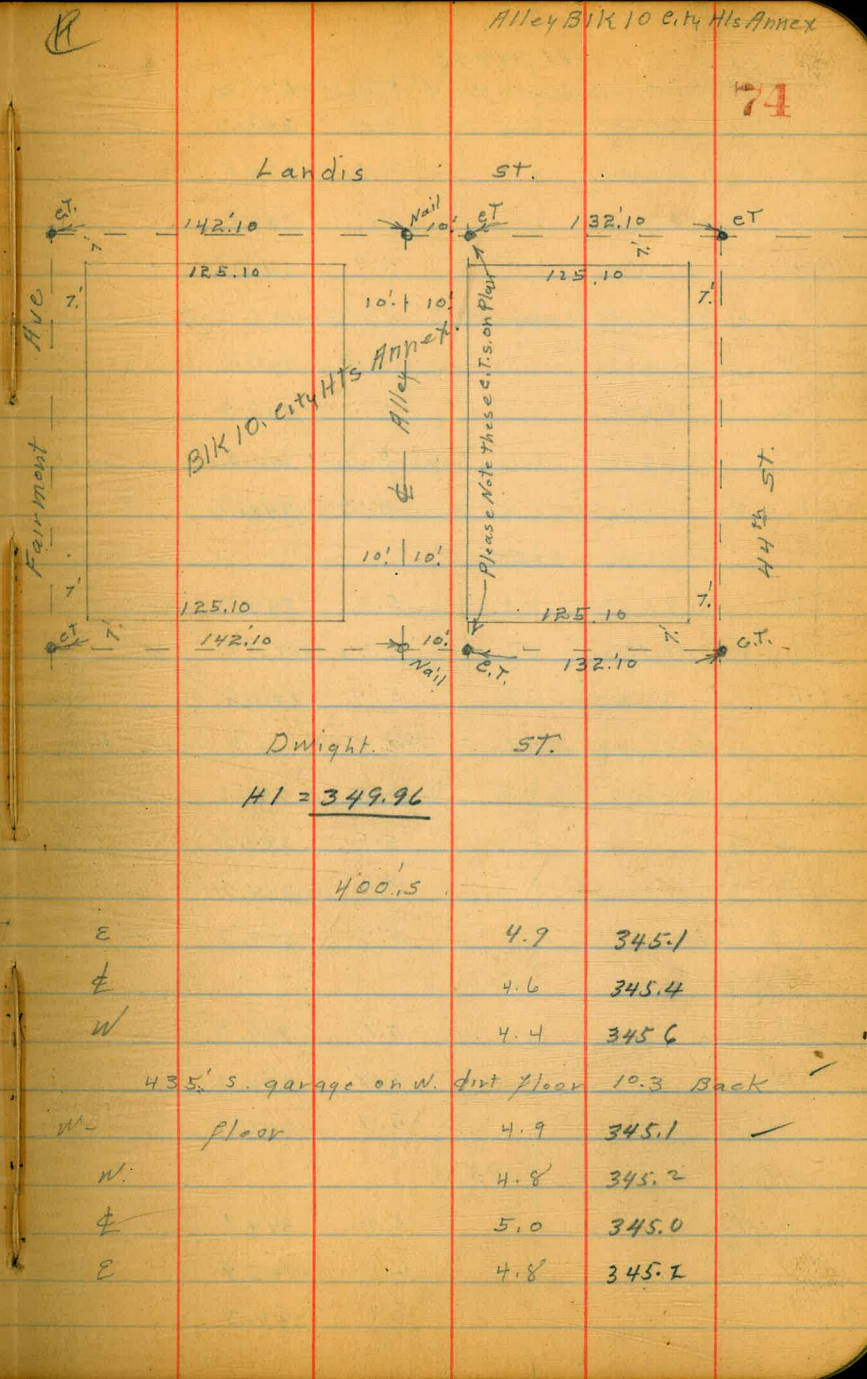 Alley Blk 10 City Hts Annex
74
Landis St.
C.T. 142.'10 Nail 10.' C.T 132.'10 C.T
7' 7.'
125.10 125.10
7.' 10.' 10.' 7.'
Fairmont Ave
Blk 10. City Hts Annex.
℄ Alley
Please Note These C.T.s. on Plan
44th St.
10.' 10.'
7' 7.'
125.10 125.10
7.' 7.'
C.T 142.'10 Nail 10.' C.T. 132.'10 C.T.
Dwight. St.
HI = 349.96
400.'S
E 4.9 345.1
℄ 4.6 345.4
W 4.4 345 6
435.' S. garage on W. dirt floor 10.3 Back
W floor 4.9 345.1
W. 4.8 345.2
℄ 5.0 345.0
E 4.8 345.2